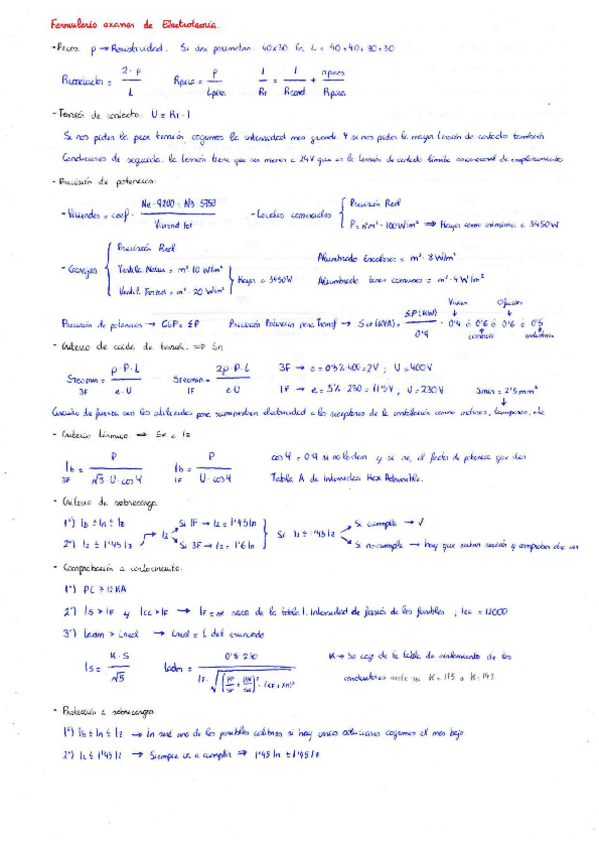 Formulario examen de Electrotecnia.
- Picas. ρ → Resistividad. Si dan perimetro: 40x30 (m) L = 40+40+30+30
Rconductor = 2·ρ / L   Rpica = ρ / Lpica   1/Rt = 1/Rcond + npicas/Rpica
- Tensión de contacto: U = Rt · I
Si nos piden la peor tensión cogemos la intensidad mas grande y si nos piden la mayor tensión de contacto también
Condiciones de seguridad: la tensión tiene que ser menor a 24V que es la tensión de contacto límite convencional de emplazamiento
- Previsión de potencias:
- Viviendas = coef · Ne·9200 + Nb·5750 / Vivend tot   - Locales comerciales { Previsión Real
P = m² · 100 W/m² ⇒ Haya como mínimo a 3450W
- Garajes { Previsión Real
Ventila. Natur = m²·10 W/m²
Ventil. Forzad = m²·20 W/m² } Haya a 3450W
Alumbrado escaleras = m² · 8 W/m²
Alumbrado zonas comunes = m² · 4 W/m²
Previsión de potencias → CGP = ΣP   Previsión Potencia para Transf → S ct (KVA) = ΣP(KW) / 0'9 · 0'4 ó 0'6 ó 0'6 ó 0'5
Vivien   Oficinas
comercios   industrias
- Criterio de caida de tensión. ⇒ Sn
Steomin 3F = ρ·P·L / e·U   Steomin 1F = 2ρ·P·L / e·U   3F → e = 0'5% 400 = 2V ; U = 400V
1F → e = 5% · 230 = 11'5V , U = 230V   Smin = 2'5mm²
Circuito de fuerza son los utilizados para suministrar electricidad a los receptores de la instalación como motores, lamparas, etc
- Criterio térmico ⇒ Sn e Iz
Ib 3F = P / √3 · U · cos φ   Ib 1F = P / U · cos φ   cos φ = 0.9 si no lo dan y si no, el factor de potencia que dan
Tabla A de Intensidad Max Admisible.
- Criterio de sobrecarga
1º) Ib ≤ In ≤ Iz
2º) I2 ≤ 1'45 Iz → I2 → Si 1F → I2 = 1'45 In
Si 3F → I2 = 1'6 In } Si I2 ≤ 1'45 Iz → Si cumple → ✓
Si no cumple → hay que subir sección y comprobar otra vez
- Comprobación a cortocircuito.
1º) PC > 12 KA
2º) Is > IF y Icc > IF → IF = se saca de la tabla 1. Intensidad de fusión de los fusibles ; Icc = 12000
3º) Ladm > Lreal → Lreal = L del enunciado
Is = K·S / √5   Ladm = 0'8·230   K → Se coge de la tabla de aislamiento de los
conductores K = 115 o K = 143
- Protección a sobrecargas.
1º) Ib ≤ In ≤ Iz → In será uno de los posibles calibres si hay varias soluciones cogemos el mas bajo
2º) I2 ≤ 1'45 Iz → Siempre va a cumplir ⇒ 1'45 In ≤ 1'45 Iz